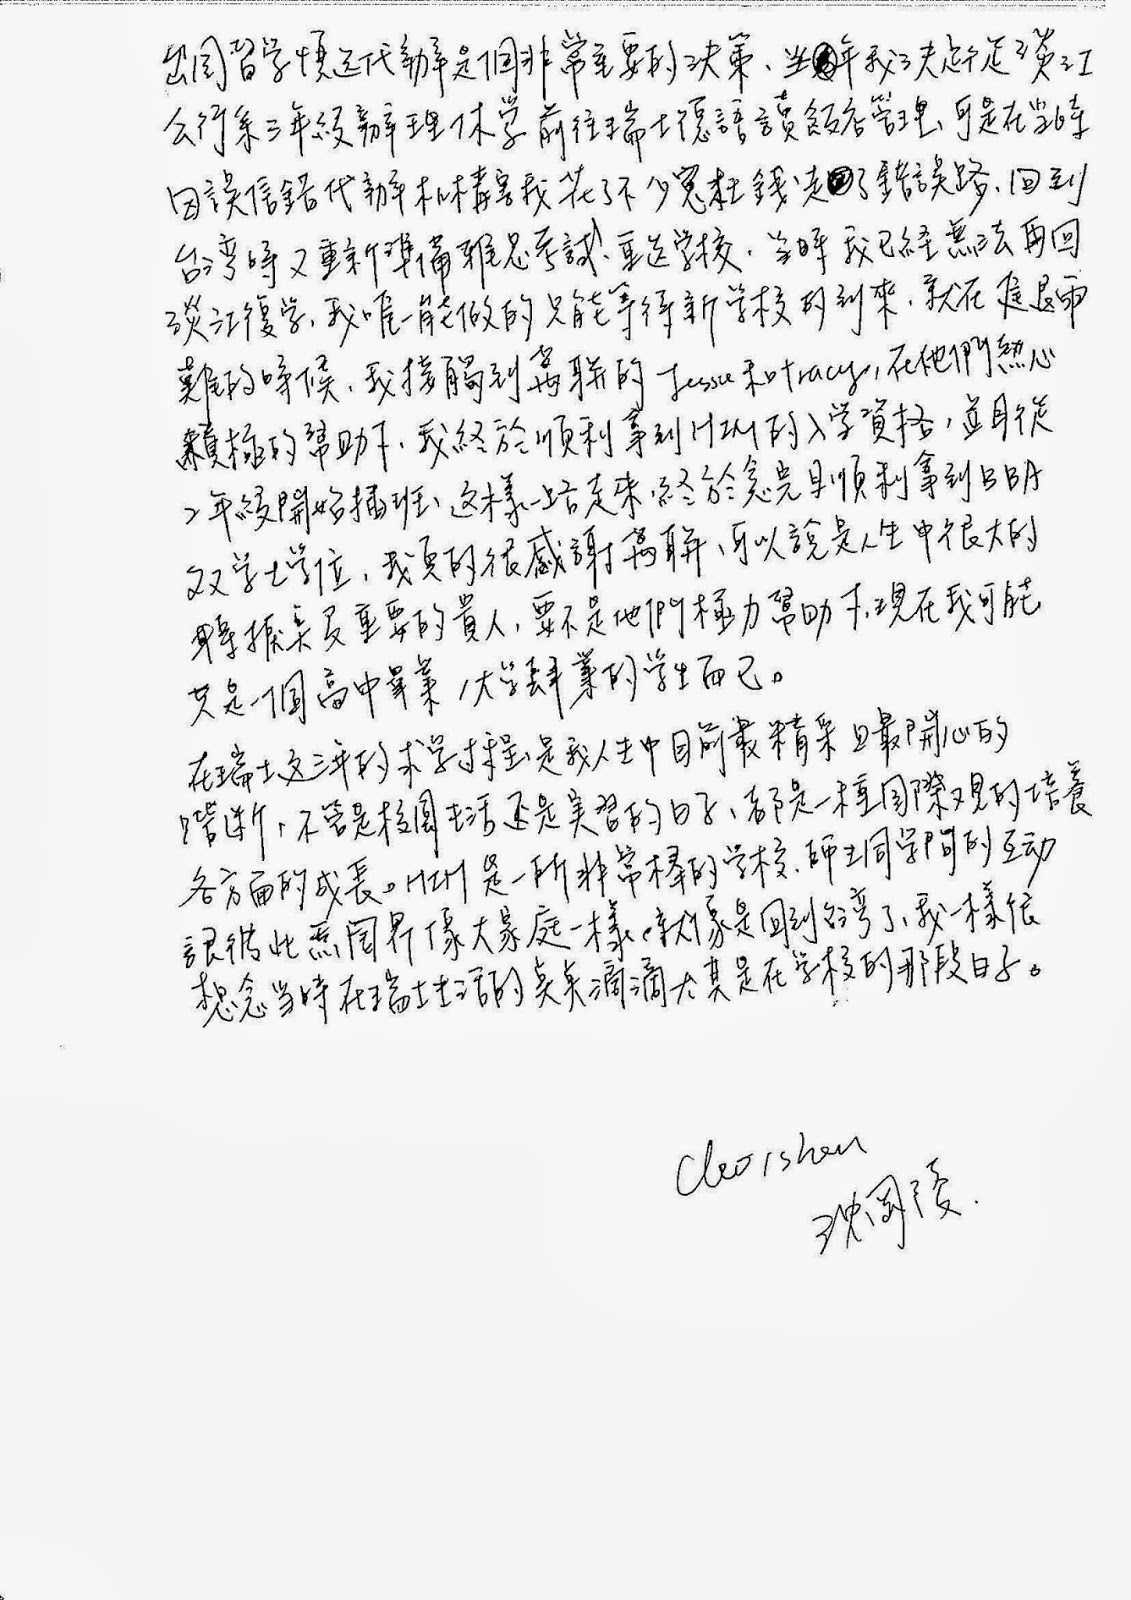 出国留学慎选代辦是個非常重要的決策、当年我決定從淡江
公行系三年級辦理休学前往瑞士德語讀飯店管理、可是在当時
因誤信錯代辦机構害我花了不少冤枉錢走了錯誤路、回到
台湾時又重新準備雅思考試、重选学校、当時我已經無法再回
淡江復学、我唯一能做的只能等待新学校的到來、就在進退兩
難的時候、我接觸到萬聯的Jessie和tracy，在他們熱心
積極的幫助下、我終於順利拿到HIM的入学資格，並且從
2年級開始插班、这樣一路走來、終於念完且順利拿到BBA
双学士学位，我真的很感謝萬聯、可以說是人生中很大的
轉捩点及重要的貴人，要不是他們極力幫助下、現在我可能
只是一個高中畢業/大学肄業的学生而已。
在瑞士这三年的求学过程是我人生中目前最精采且最開心的
階断，不管是校園生活还是実習的日子、都是一種国際观的培養
各方面的成長。HIM是一所非常棒的学校、師生同学間的互动
讓彼此無国界像大家庭一樣。就像是回到台湾了、我一樣很
想念当時在瑞士生活的点点滴滴尤其是在学校的那段日子。
Cleo, shen
沈国陵.